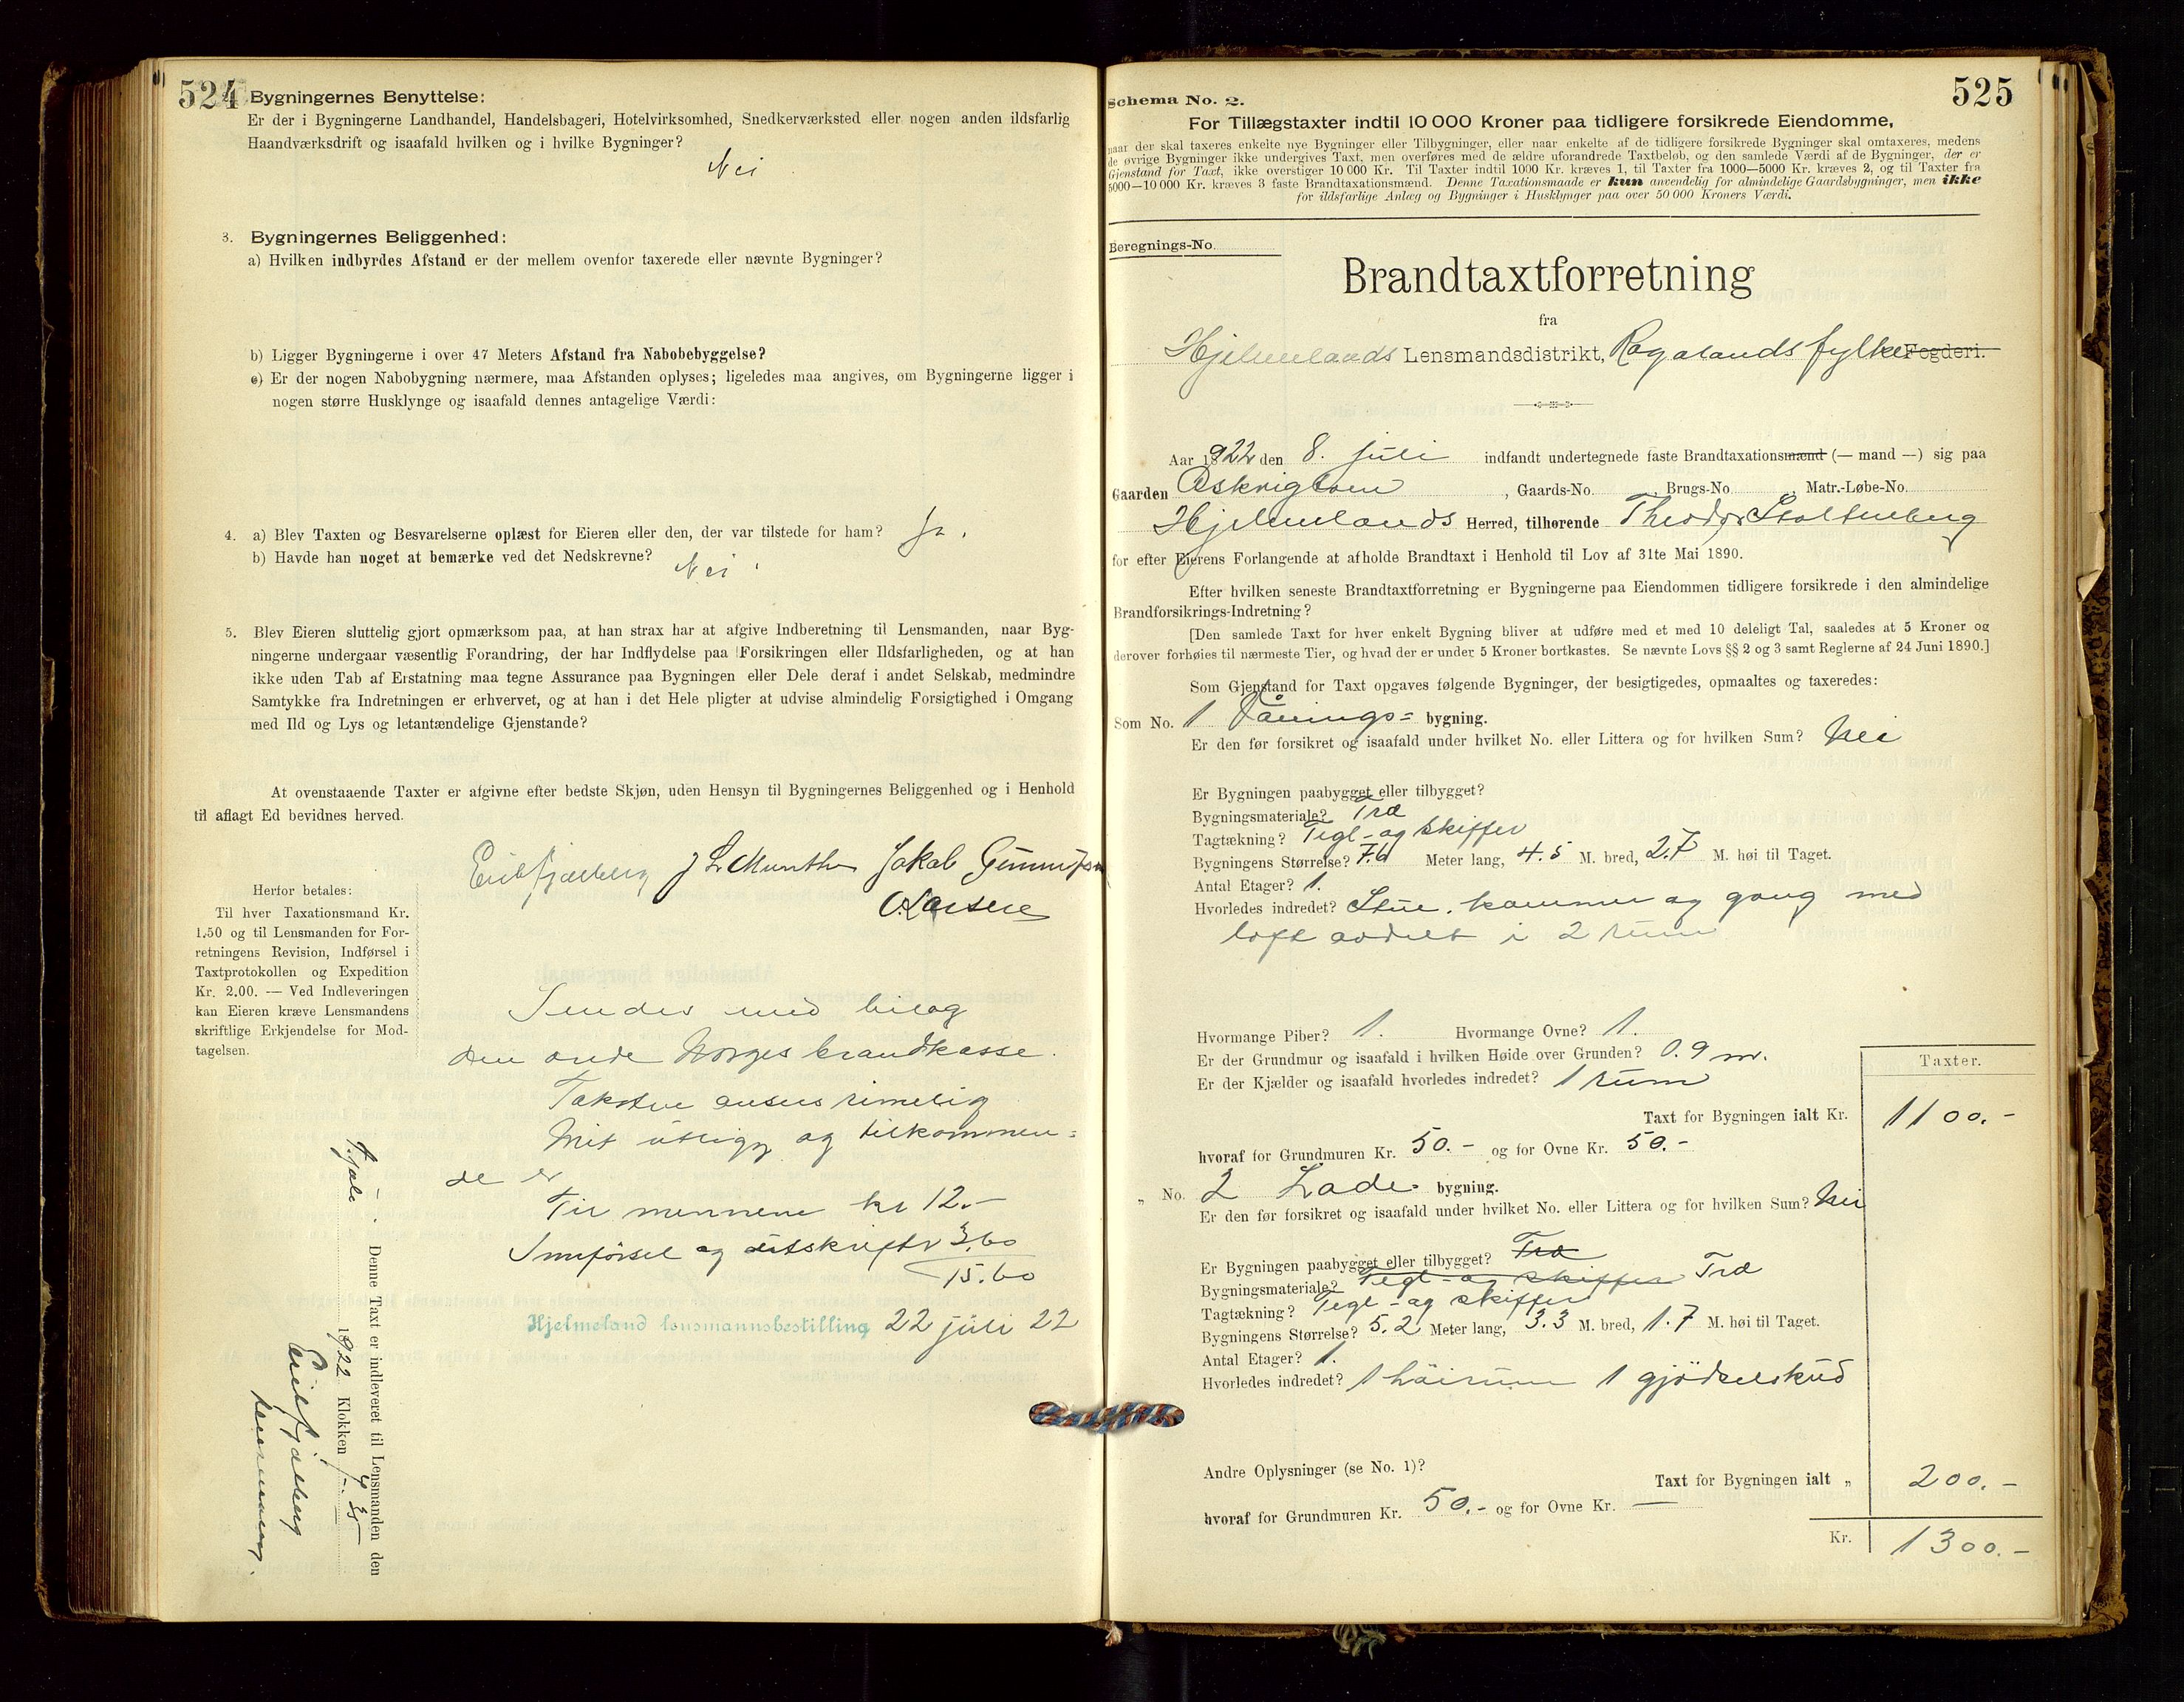 524
Bygningernes Benyttelse:
Er der i Bygningerne Landhandel, Handelsbageri, Hotelvirksomhed, Snedkerværksted eller nogen anden ildsfarlig
Haandværksdrift og isaafald hvilken og i hvilke Bygninger?
Nei
3. Bygningernes Beliggenhed:
a) Hvilken indbyrdes Afstand er der mellem ovenfor taxerede eller nævnte Bygninger?
b) Ligger Bygningerne i over 47 Meters Afstand fra Nabobebyggelse?
c) Er der nogen Nabobygning nærmere, maa Afstanden oplyses; ligeledes maa angives, om Bygningerne ligger i
nogen større Husklynge og isaafald dennes antagelige Værdi:
4. a) Blev Taxten og Besvarelserne oplæst for Eieren eller den, der var tilstede for ham? Ja.
b) Havde han noget at bemærke ved det Nedskrevne? Nei
5. Blev Eieren sluttelig gjort opmærksom paa, at han strax har at afgive Indberetning til Lensmanden, naar Byg-
ningerne undergaar væsentlig Forandring, der har Indflydelse paa Forsikringen eller Ildsfarligheden, og at han
ikke uden Tab af Erstatning maa tegne Assurance paa Bygningen eller Dele deraf i andet Selskab, medmindre
Samtykke fra Indretningen er erhvervet, og at han i det Hele pligter at udvise almindelig Forsigtighed i Omgang
med Ild og Lys og letantændelige Gjenstande?
At ovenstaaende Taxter er afgivne efter bedste Skjøn, uden Hensyn til Bygningernes Beliggenhed og i Henhold
til aflagt Ed bevidnes herved.
J L Munthe Jakob
O. Larsen
Herfor betales:
Til hver Taxationsmand Kr.
1.50 og til Lensmanden for For-
retningens Revision, Indførsel i
Taxtprotokollen og Expedition
Kr. 2.00. — Ved Indleveringen
kan Eieren kræve Lensmandens
skriftlige Erkjendelse for Mod-
tagelsen.
Sendes med bilag
den ærede Norges brandkasse.
Taksten ansees rimelig
Mit utlegg og tilkommen=
de er
Til mennene kr 12.-
Innførsel og utskrifter 3.60
15.60
Hjelmeland lensmannsbestilling 22 juli 22
Denne Taxt er indleveret til Lensmanden den
1922 Klokken
lensmann.
525
Schema No. 2.
For Tillægstaxter indtil 10 000 Kroner paa tidligere forsikrede Eiendomme,
naar der skal taxeres enkelte nye Bygninger eller Tilbygninger, eller naar enkelte af de tidligere forsikrede Bygninger skal omtaxeres, medens
de øvrige Bygninger ikke undergives Taxt, men overføres med de ældre uforandrede Taxtbeløb, og den samlede Værdi af de Bygninger, der er
Gjenstand for Taxt, ikke overstiger 10 000 Kr. Til Taxter indtil 1000 Kr. kræves 1, til Taxter fra 1000—5000 Kr. kræves 2, og til Taxter fra
5000—10 000 Kr. kræves 3 faste Brandtaxationsmænd. Denne Taxationsmaade er kun anvendelig for almindelige Gaardsbygninger, men ikke
for ildsfarlige Anlæg og Bygninger i Husklynger paa over 50 000 Kroners Værdi.
Beregnings-No.
Brandtaxtforretning
fra
Hjelmelands Lensmandsdistrikt, Rogalands fylke Fogderi.
Aar 1922 den 8. juli indfandt undertegnede faste Brandtaxationsmænd (— mand —) sig paa
Gaarden , Gaards-No. Brugs-No. , Matr.-Løbe-No.
Hjelmelands Herred, tilhørende Theodor Stoltenberg
for efter Eierens Forlangende at afholde Brandtaxt i Henhold til Lov af 31te Mai 1890.
Efter hvilken seneste Brandtaxtforretning er Bygningerne paa Eiendommen tidligere forsikrede i den almindelige
Brandforsikrings-Indretning?
[Den samlede Taxt for hver enkelt Bygning bliver at udføre med et med 10 deleligt Tal, saaledes at 5 Kroner og
derover forhøies til nærmeste Tier, og hvad der er under 5 Kroner bortkastes. Se nævnte Lovs §§ 2 og 3 samt Reglerne af 24 Juni 1890.]
Som Gjenstand for Taxt opgaves følgende Bygninger, der besigtigedes, opmaaltes og taxeredes:
Som No. 1 Vånings= bygning.
Er den før forsikret og isaafald under hvilket No. eller Littera og for hvilken Sum? Nei
Er Bygningen paabygget eller tilbygget?
Bygningsmateriale? Træ
Tagtækning? Tegl- og skiffer
Bygningens Størrelse? 7.6 Meter lang, 4.5 M. bred, 2.7 M. høi til Taget.
Antal Etager? 1.
Hvorledes indredet? Stue, kammer og gang med
loft avdelt i 2 rum
Hvormange Piber? 1. Hvormange Ovne? 1.
Er der Grundmur og isaafald i hvilken Høide over Grunden? 0.9 m.
Er der Kjælder og isaafald hvorledes indredet? 1 rum
Taxter.
Taxt for Bygningen ialt Kr. 1100.-
hvoraf for Grundmuren Kr. 50.- og for Ovne Kr. 50.-
„ No. 2 Lade- bygning.
Er den før forsikret og isaafald under hvilket No. eller Littera og for hvilken Sum? Nei
Er Bygningen paabygget eller tilbygget? Træ
Bygningsmateriale? Tegl- og skiffer Træ
Tagtækning? Tegl- og skiffer
Bygningens Størrelse? 5.2 Meter lang, 3.3 M. bred, 1.7 M. høi til Taget.
Antal Etager? 1.
Hvorledes indredet? 1 høirum 1 gjødselskud
Andre Oplysninger (se No. 1)?
Taxt for Bygningen ialt „ 200.-
hvoraf for Grundmuren Kr. 50.- og for Ovne Kr. —
Kr. 1300.-